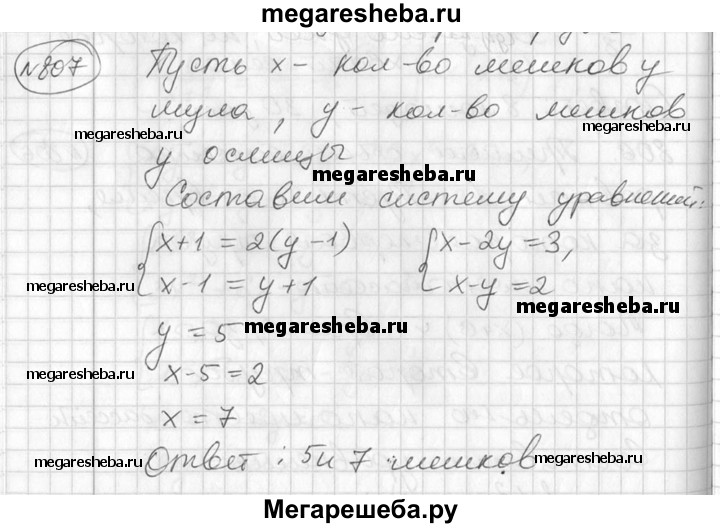 megaresheba.ru
№807 Пусть x - кол-во мешков у
мула, y - кол-во мешков
megaresheba.ru
megaresheba.ru
у ослицы
megaresheba.ru
Составим систему уравнений:
{x+1=2(y-1) {x-2y=3,
{x-1=y+1 {x-y=2
megaresheba.ru
megaresheba.ru
y=5
megaresheba.ru
x-5=2
megaresheba.ru
megaresheba.ru
x=7
Ответ: 5 и 7 мешков
megaresheba.ru
megaresheba.ru
Мегарешеба.ру